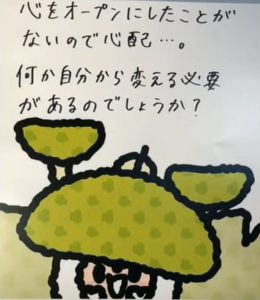 心をオープンにしたことが
ないので心配…。
何か自分から変える必要
があるのでしょうか？